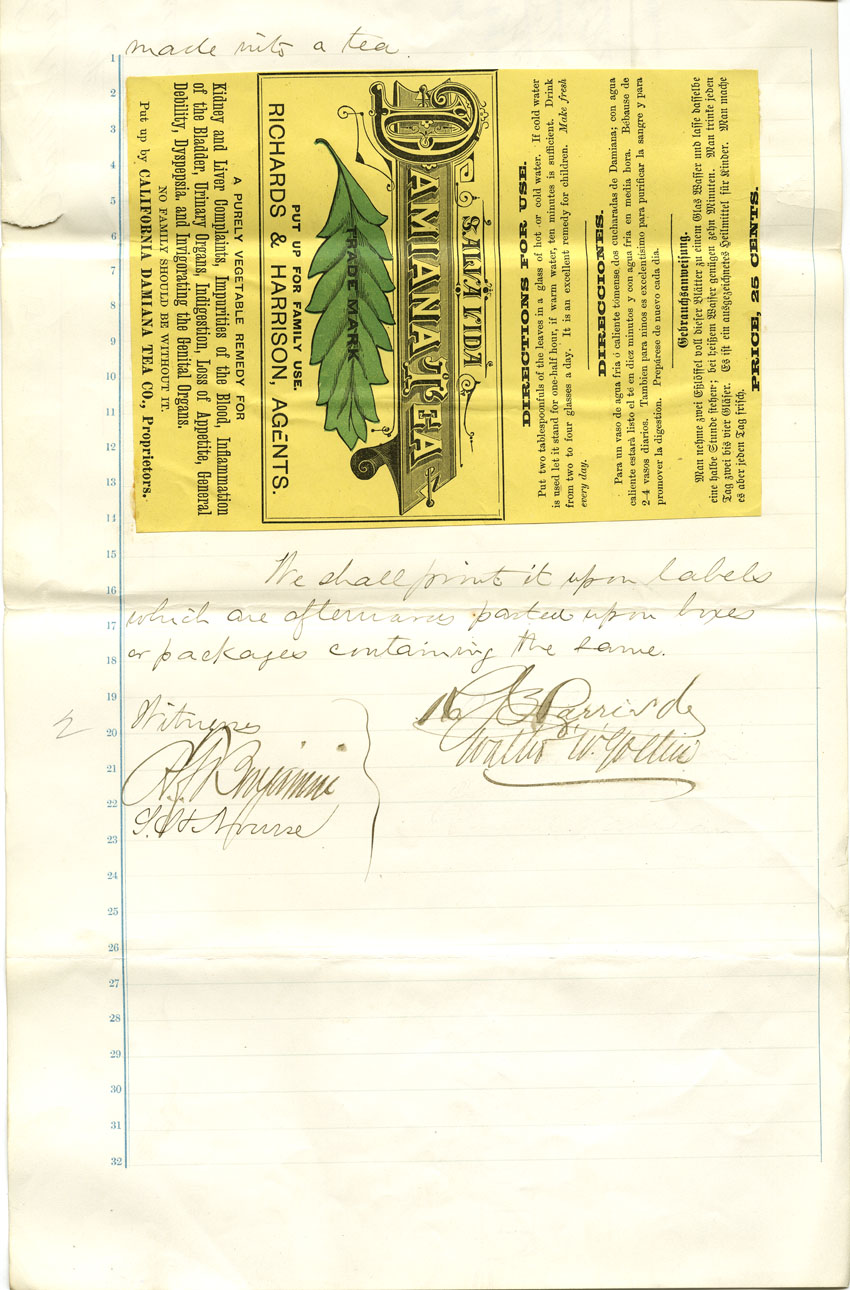 made into a tea.
SALIZ VIDA
DAMIANA TEA
TRADE MARK
PUT UP FOR FAMILY USE.
RICHARDS & HARRISON, AGENTS.
A PURELY VEGETABLE REMEDY FOR
Kidney and Liver Complaints, Impurities of the Blood, Inflammation
of the Bladder, Urinary Organs, Indigestion, Loss of Appetite, General
Debility, Dyspepsia, and Invigorating the Genital Organs.
NO FAMILY SHOULD BE WITHOUT IT.
Put up by CALIFORNIA DAMIANA TEA CO., Proprietors.
DIRECTIONS FOR USE.
Put two tablespoonfuls of the leaves in a glass of hot or cold water. If cold water
is used let it stand for one-half hour, if warm water, ten minutes is sufficient. Drink
from two to four glasses a day. It is an excellent remedy for children. Make fresh
every day.
DIRECCIONES.
Para un vaso de agua fria ó caliente tómense dos cucharadas de Damiana; con agua
caliente estará listo el té en diez minutos y con agua fria en media hora. Bébause de
2-4 vasos diarios. Tambien para niños es excelentísimo para purificar la sangre y para
promover la digestion. Prepárese de nuevo cada dia.
Gebrauchsanweisung.
Man nehme zwei Eßlöffel voll dieser Blätter zu einem Glas Wasser und lasse dasselbe
eine halbe Stunde stehen; bei heißem Wasser genügen zehn Minuten. Man trinke jeden
Tag zwei bis vier Gläser. Es ist ein ausgezeichnetes Heilmittel für Kinder. Man mache
es aber jeden Tag frisch.
PRICE, 25 CENTS.
We shall print it upon labels
which are afterwards pasted upon boxes
or packages containing the same.
Witness
1
2
3
4
5
6
7
8
9
10
11
12
13
14
15
16
17
18
19
20
21
22
23
24
25
26
27
28
29
30
31
32